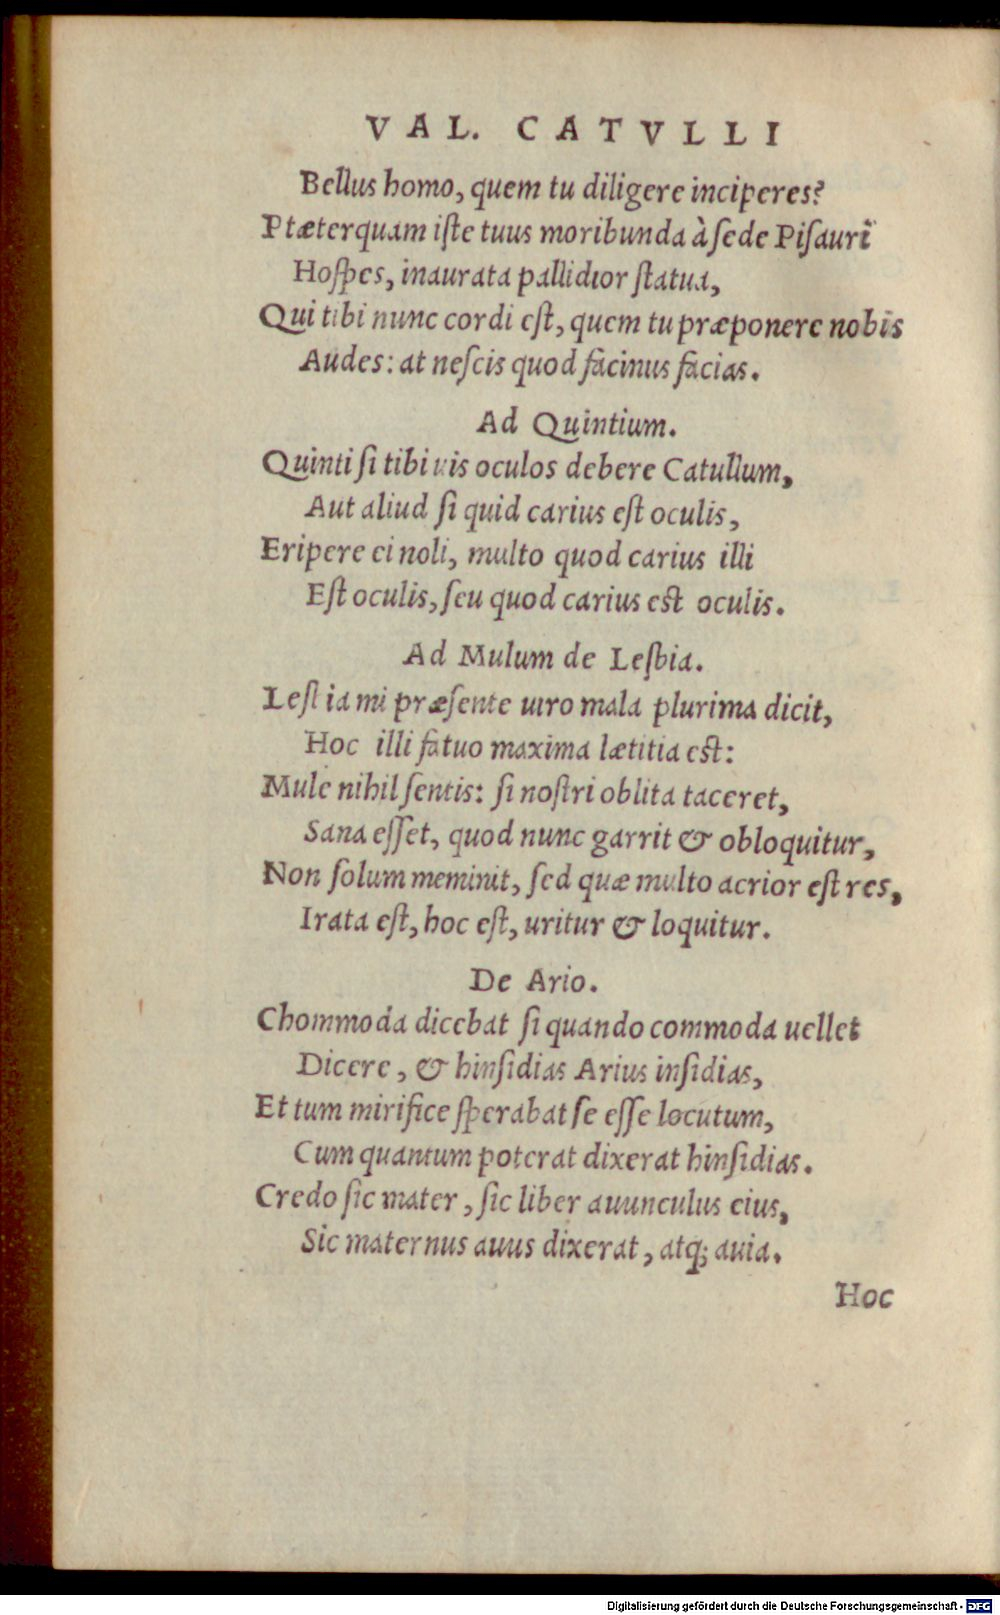 VAL. CATVLLI
Bellus homo, quem tu diligere inciperes?
Ptæterquam iſte tuus moribunda à ſede Piſauri
Hoſpes, inaurata pallidior ſtatua,
Qui tibi nunc cordi eſt, quem tu præponere nobis
Audes: at neſcis quod facinus facias.
Ad Quintium.
Quinti ſi tibi vis oculos debere Catullum,
Aut aliud ſi quid carius eſt oculis,
Eripere ei noli, multo quod carius illi
Eſt oculis, ſeu quod carius est oculis.
Ad Mulum de Leſbia.
Leſbia mi præſente uiro mala plurima dicit,
Hoc illi fatuo maxima lætitia est:
Mule nihil ſentis: ſi noſtri oblita taceret,
Sana eſſet, quod nunc garrit & obloquitur,
Non ſolum meminit, ſed quæ multo acrior eſt res,
Irata eſt, hoc eſt, uritur & loquitur.
De Ario.
Chommoda dicebat ſi quando commoda uellet
Dicere, & hinſidias Arius inſidias,
Et tum mirifice ſperabat ſe eſſe locutum,
Cum quantum poterat dixerat hinſidias.
Credo ſic mater, ſic liber auunculus eius,
Sic maternus auus dixerat, atq; auia.
Hoc
Digitalisierung gefördert durch die Deutsche Forschungsgemeinschaft - DFG